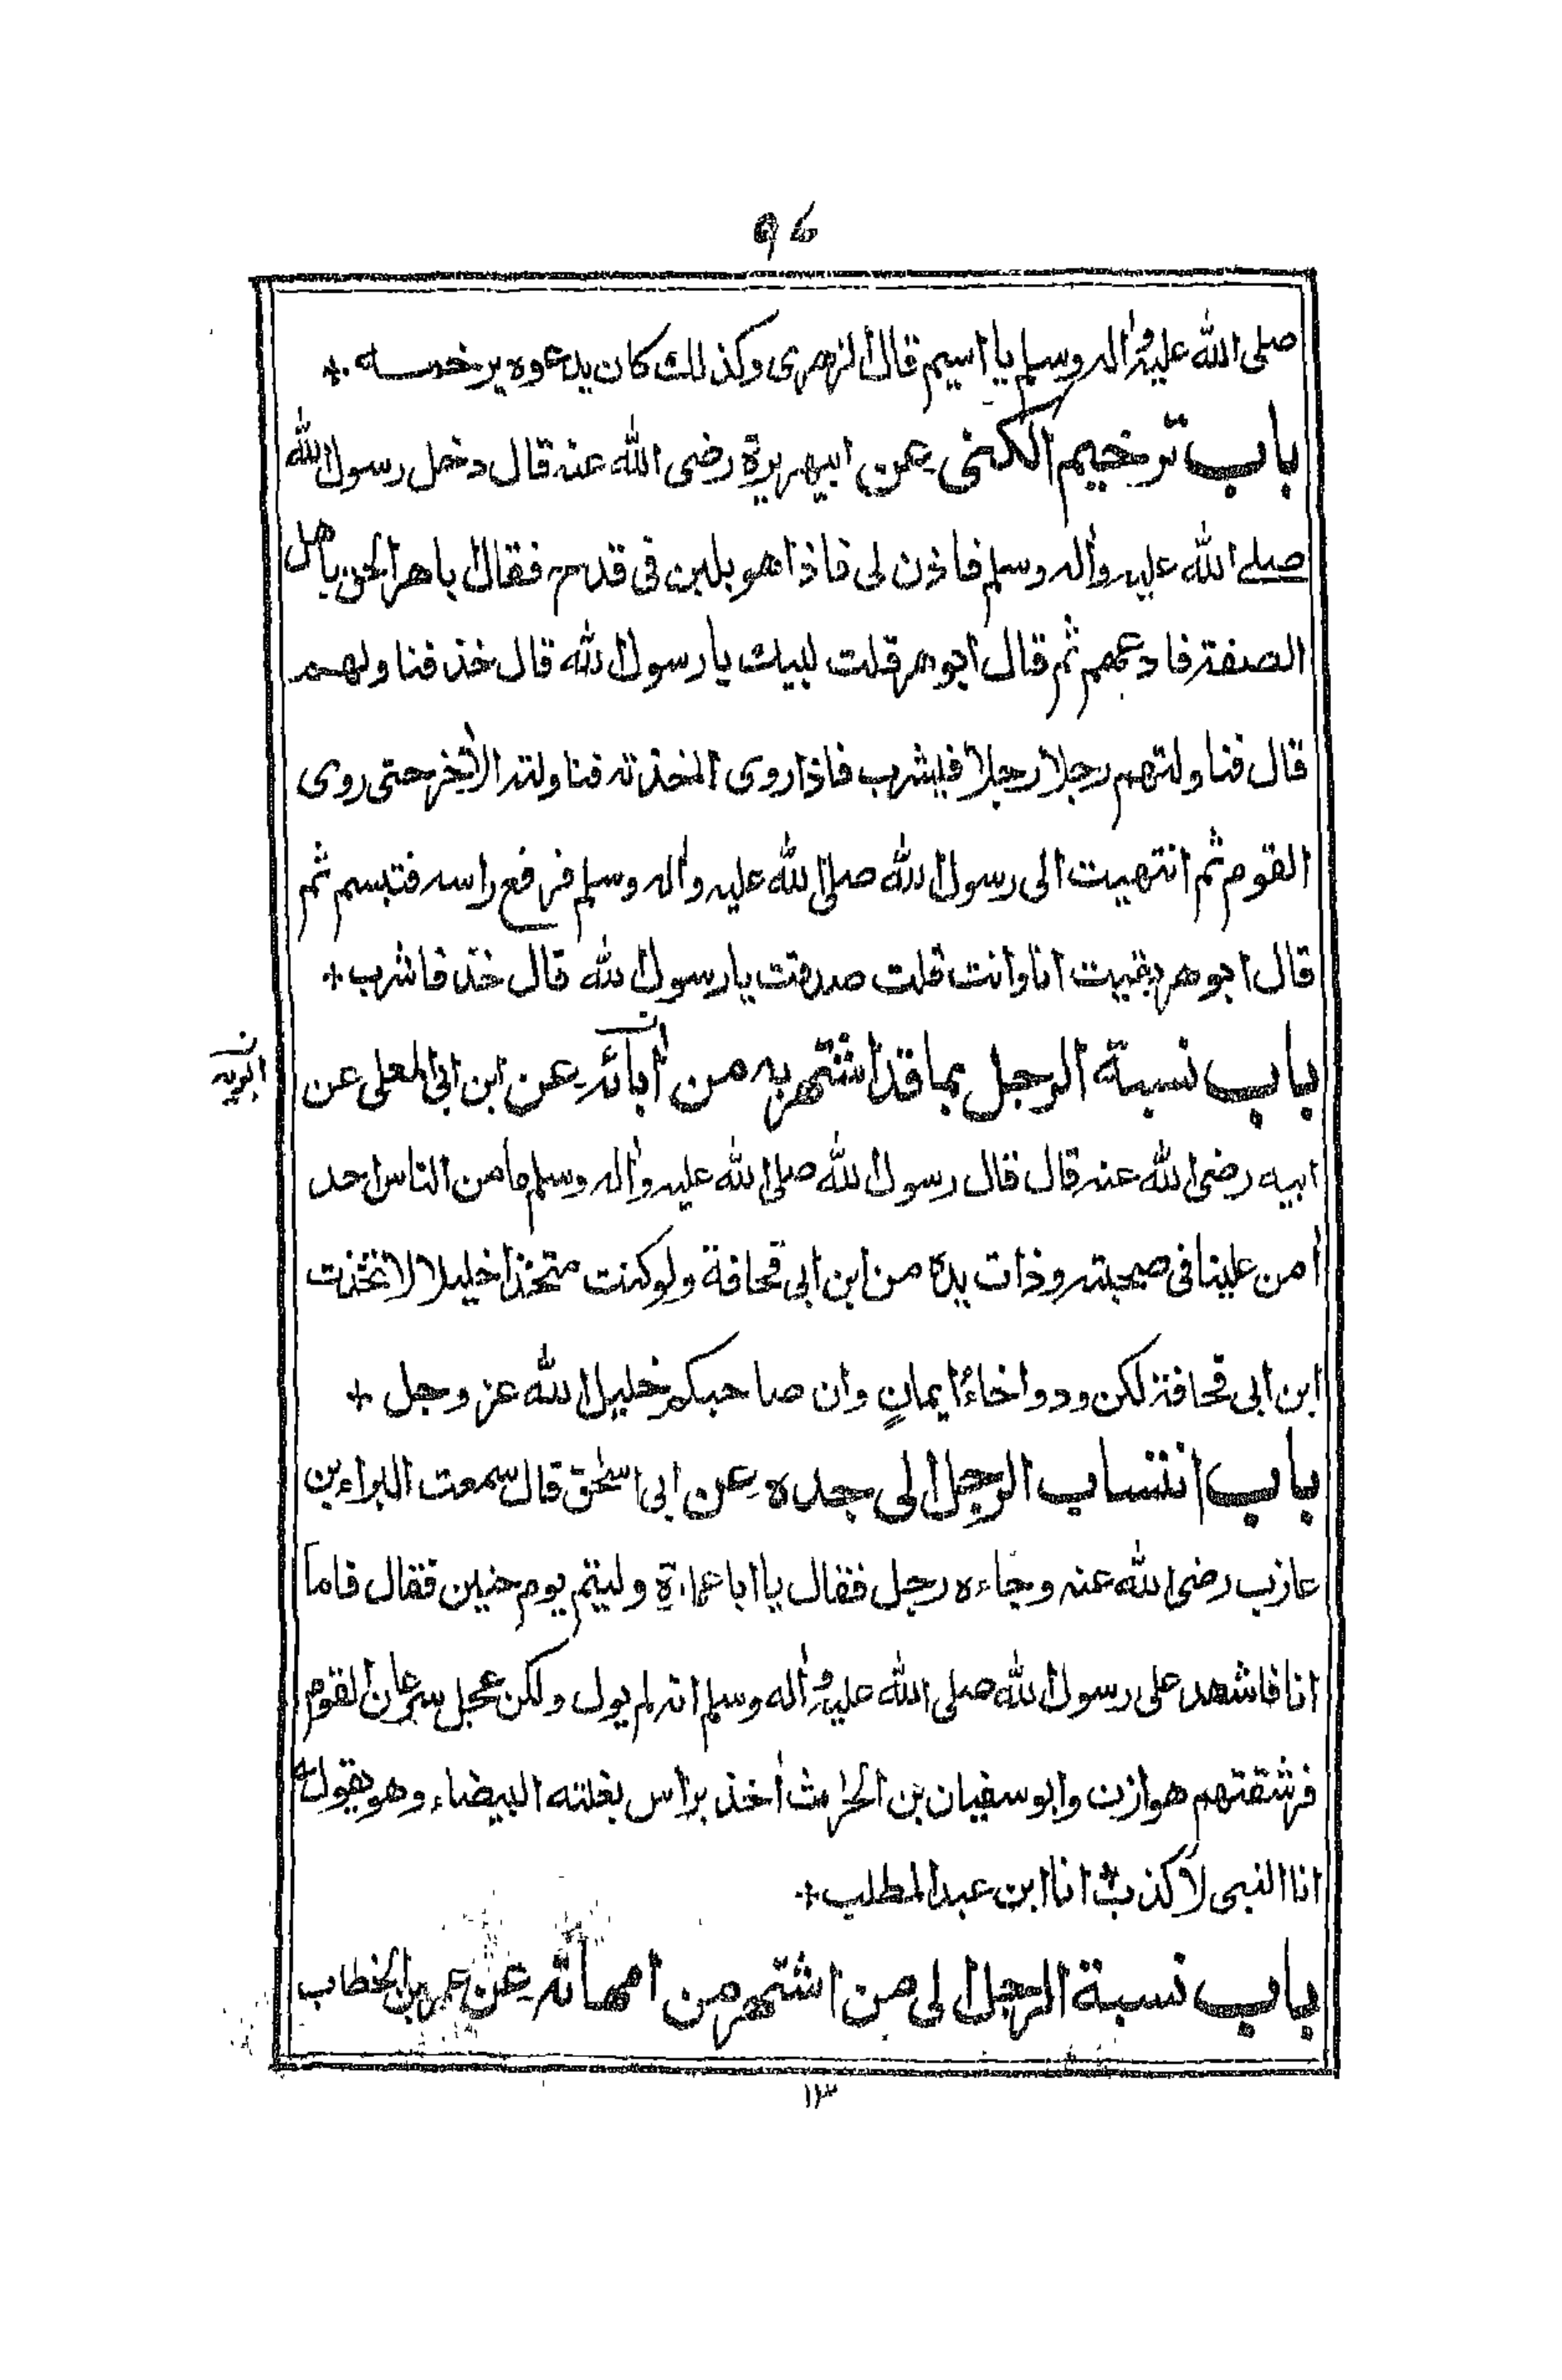 ٩٦
صلى الله عليه واله وسلم يا اسيم قال الزهرى وكذلك كان يدعوه يرخمه +
باب ترخيم الكنى عن ابيهريرة رضى الله عنه قال دخل رسول الله
صلے الله عليه واله وسلم فاذن لى فاذا هو بلبن فى قدح فقال باهر الحق باهل
الصفة فادعهم ثم قال ابو هر قلت لبيك يا رسول الله قال خذ فناولهم
قال فناولتهم رجلا رجلا فيشرب فاذا روى اخذته فناولته الأخر حتى روى
القوم ثم انتهيت الى رسول الله صلى الله عليه واله وسلم فرفع راسه فتبسم ثم
قال ابو هر بقيت انا وانت قلت صدقت يا رسول الله قال خذ فاشرب +
باب نسبة الرجل بما قد اشتهر به من أبائه عن ابن ابى المعلى عن
ابيه رضى الله عنه قال قال رسول الله صلى الله عليه واله وسلم ما من الناس احد
أمن علينا فى صحبته وذات يده من ابن ابى قحافة ولو كنت متخذا خليلا لاتخذت
ابن ابى قحافة لكن ود واخاءُ ايمانٍ وان صاحبكم خليل الله عز وجل +
باب انتساب الرجل الى جده عن ابى اسحٰق قال سمعت البراء بن
عازب رضى الله عنه وجاءه رجل فقال يا ابا عمارة وليتم يوم حنين فقال فاما
انا فاشهد على رسول الله صلى الله عليه واله وسلم انه لم يول ولكن عجل سرعان القوم
فرشقتهم هوازن وابو سفيان بن الحارث أخذ براس بغلته البيضاء وهو يقول
انا النبى لا كذب انا ابن عبد المطلب +
باب نسبة الرجل الى من اشتهر من امهاته عن عمر بن الخطاب
١٣